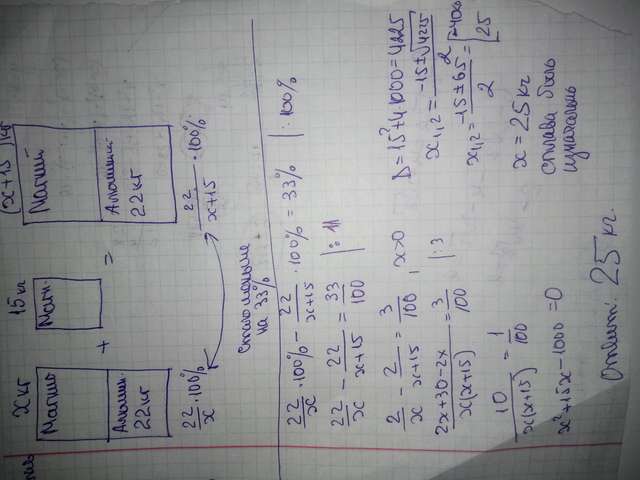 x кг
15 кг
(x+15) кг
Магний
Алюмин.
22 кг
+
Магн.
=
Магний
Алюмин.
22 кг
22/x · 100%
22/(x+15) · 100%
Стало меньше
на 33%
22/x · 100% − 22/(x+15) · 100% = 33% | : 100%
22/x − 22/(x+15) = 33/100 | : 11
2/x − 2/(x+15) = 3/100, x>0
(2x+30−2x)/(x(x+15)) = 3/100 | : 3
10/(x(x+15)) = 1/100
x²+15x−1000=0
D=15²+4·1000=4225
x₁,₂ = (−15±√4225)/2
x₁,₂ = (−15±65)/2 = [−40 ∅
25
x=25 кг
сплава было
изначально
Ответ: 25 кг.